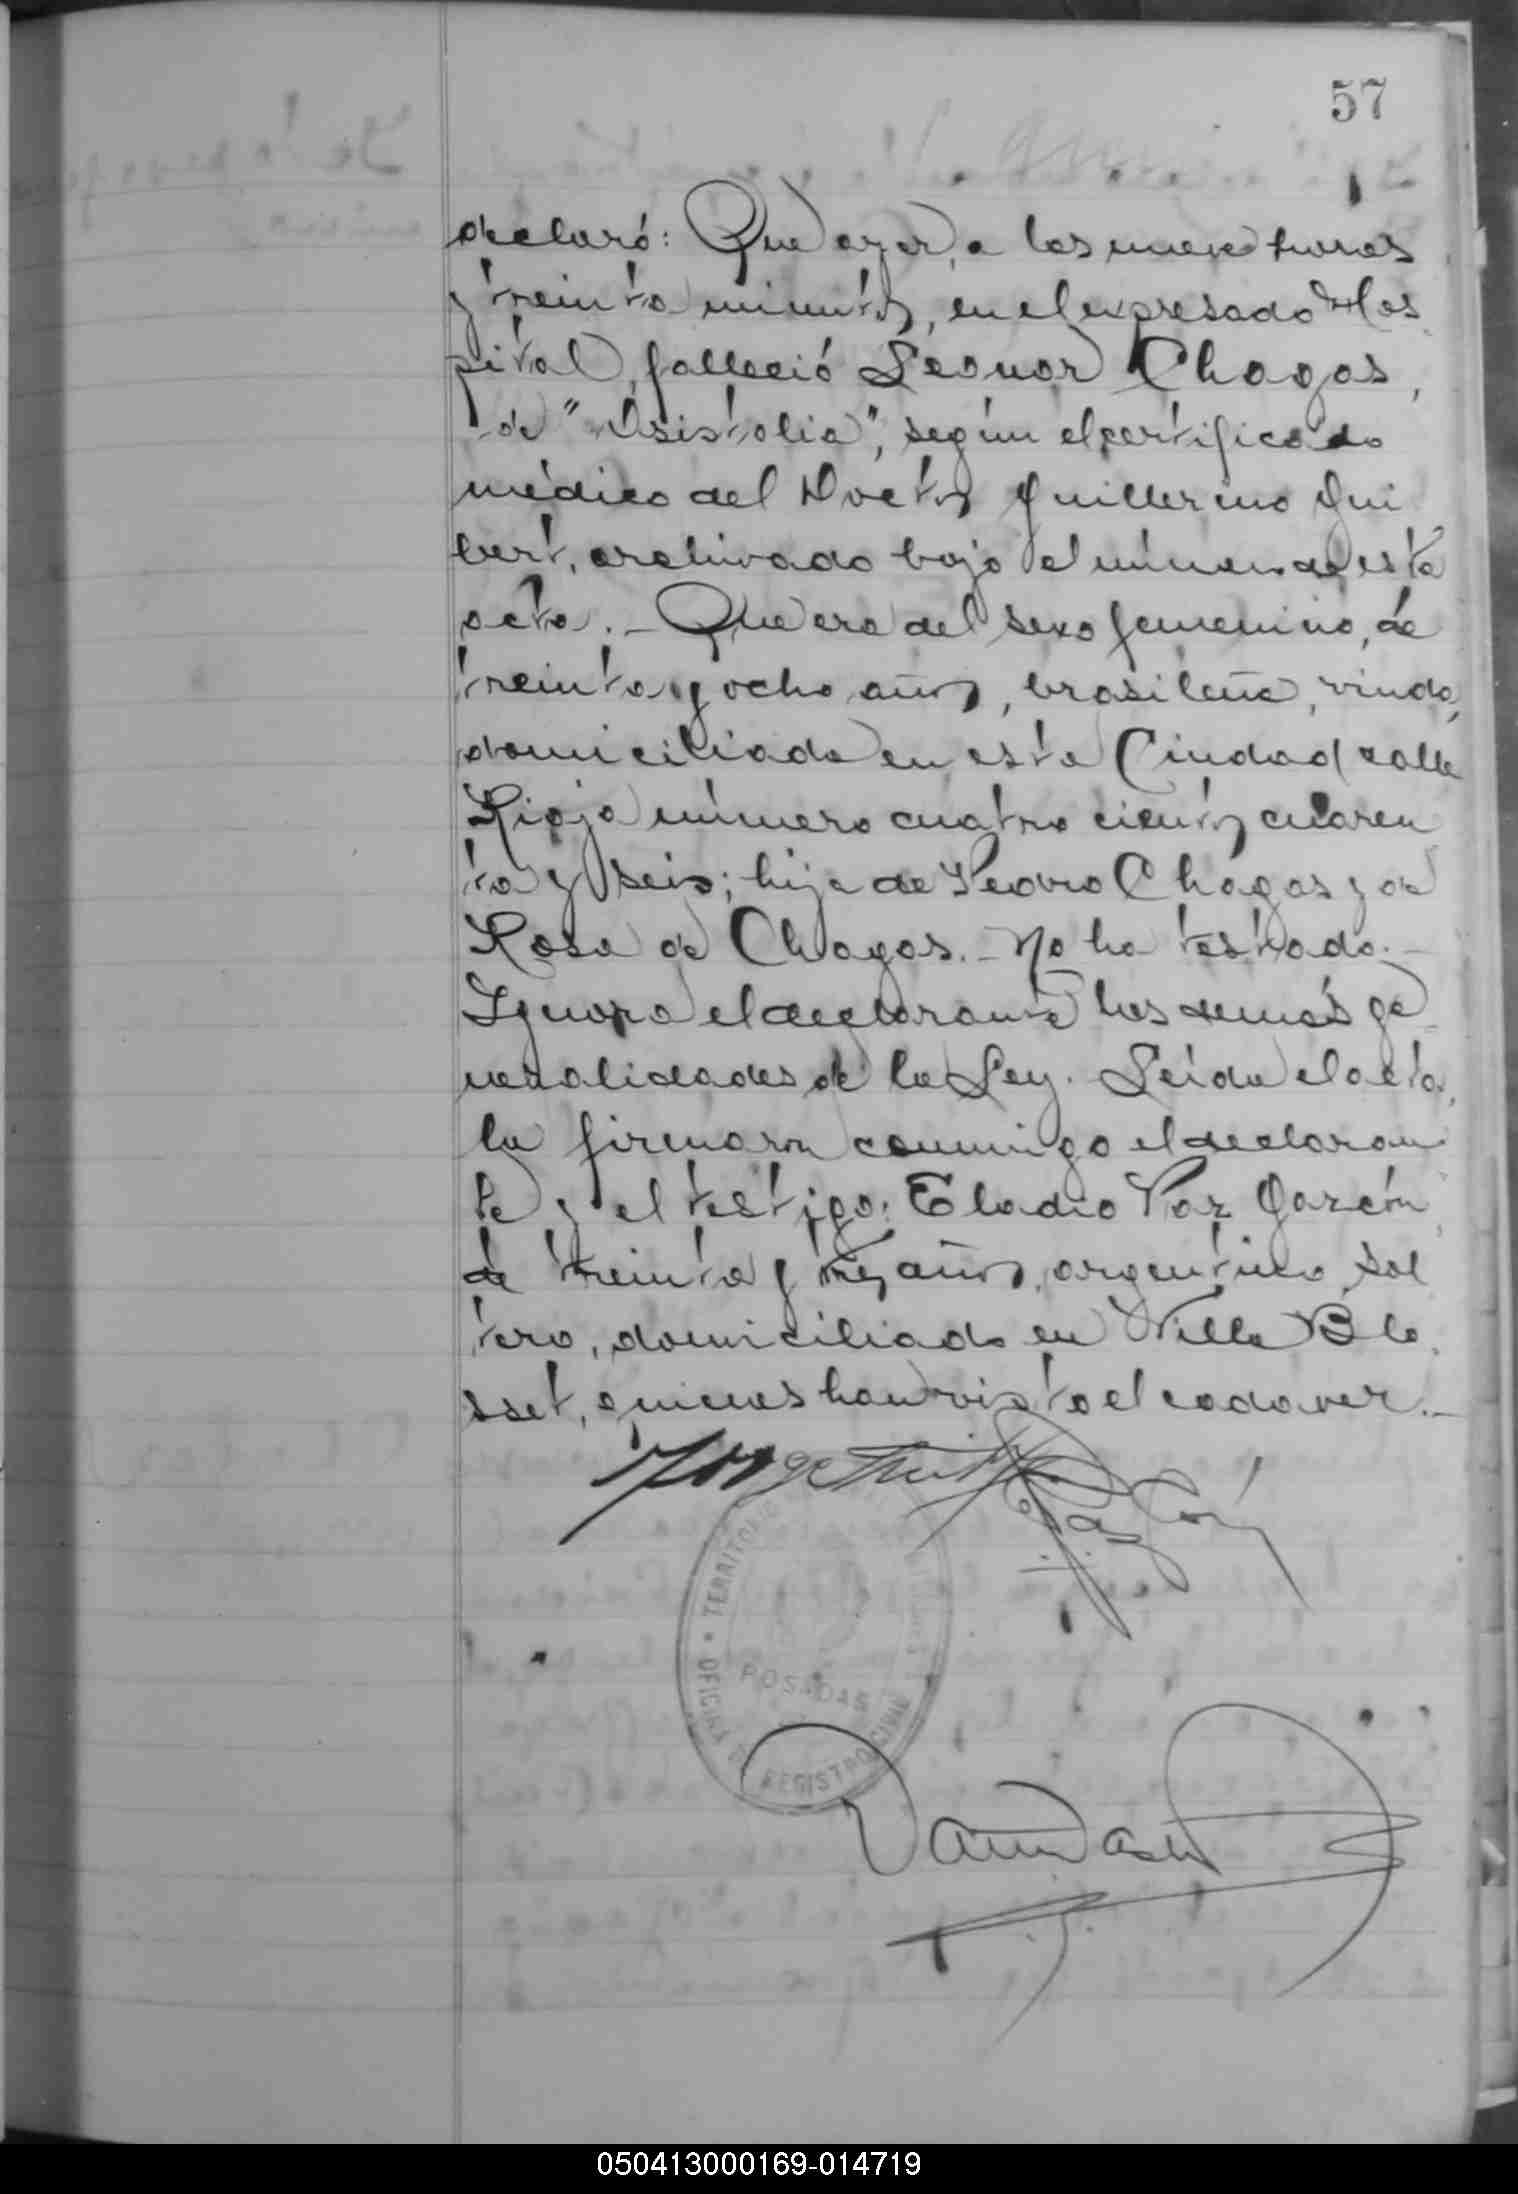 57
declaró: Que ayer, a las nueve horas
y treinta minutos, en el expresado Hos
pital, falleció Leonor Chagas,
de "Asistolia", según el certificado
médico del Doctor Guillermo Gui
bert, archivado bajo el número de esta
acta. - Que era del sexo femenino, de
treinta y ocho años, brasileña, viuda,
domiciliada en esta Ciudad calle
Rioja número cuatro cientos cuaren
ta y seis; hija de Pedro Chagas y de
Rosa de Chagas. - No ha testado. -
Ignora el declarante las demás ge
neralidades de la Ley. Leída el acta,
la firmaron conmigo el declaran
te y el testigo: Eladio Paz Garzón,
de treinta y tres años, argentino, sol
tero, domiciliado en Villa Blo
sset, quienes han visto el cadaver. -
TERRITORIO
POSADAS
OFICINA DE REGISTRO CIVIL
050413000169-014719